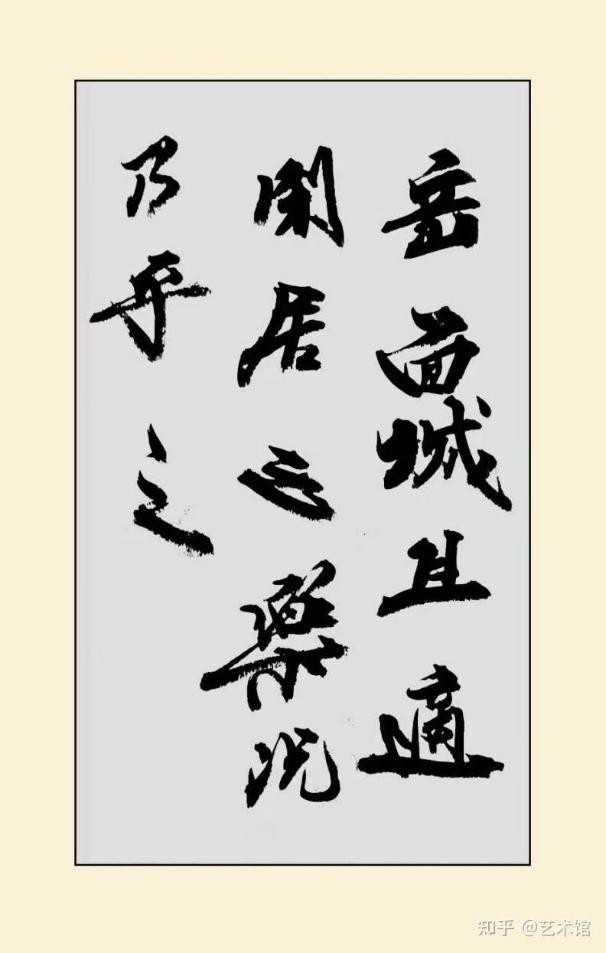 岳面城且適
閑居之樂況
乃乎之
知乎 @艺术馆